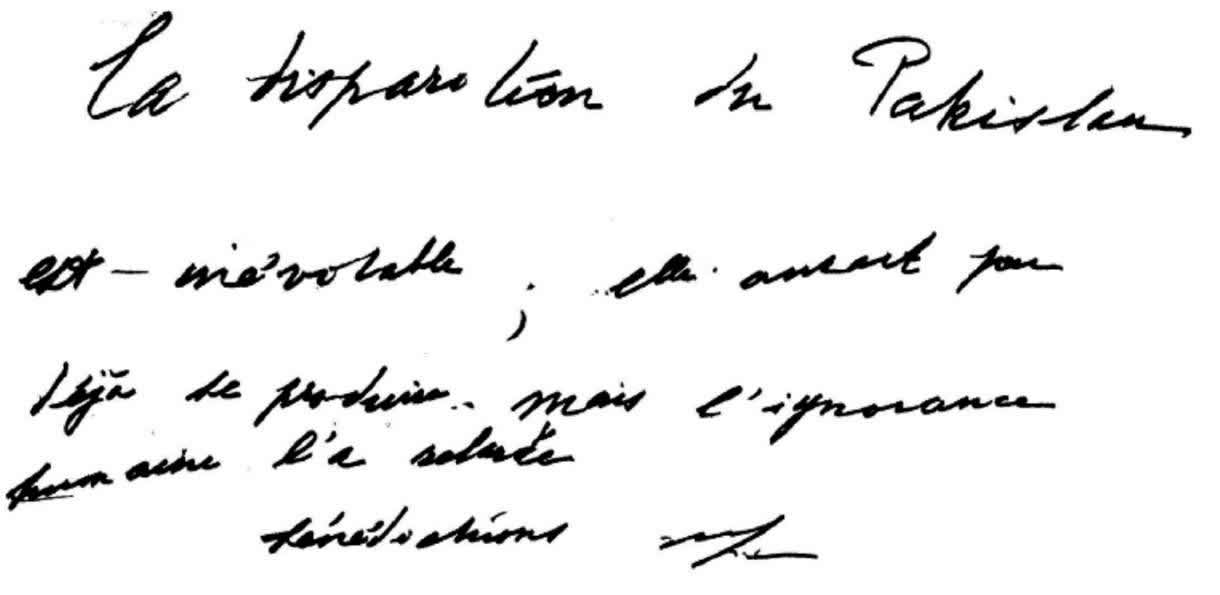 La disparition du Pakistan
est inévitable ; elle aurait pu
déjà se produire mais l'ignorance
humaine l'a retardée
bénédictions